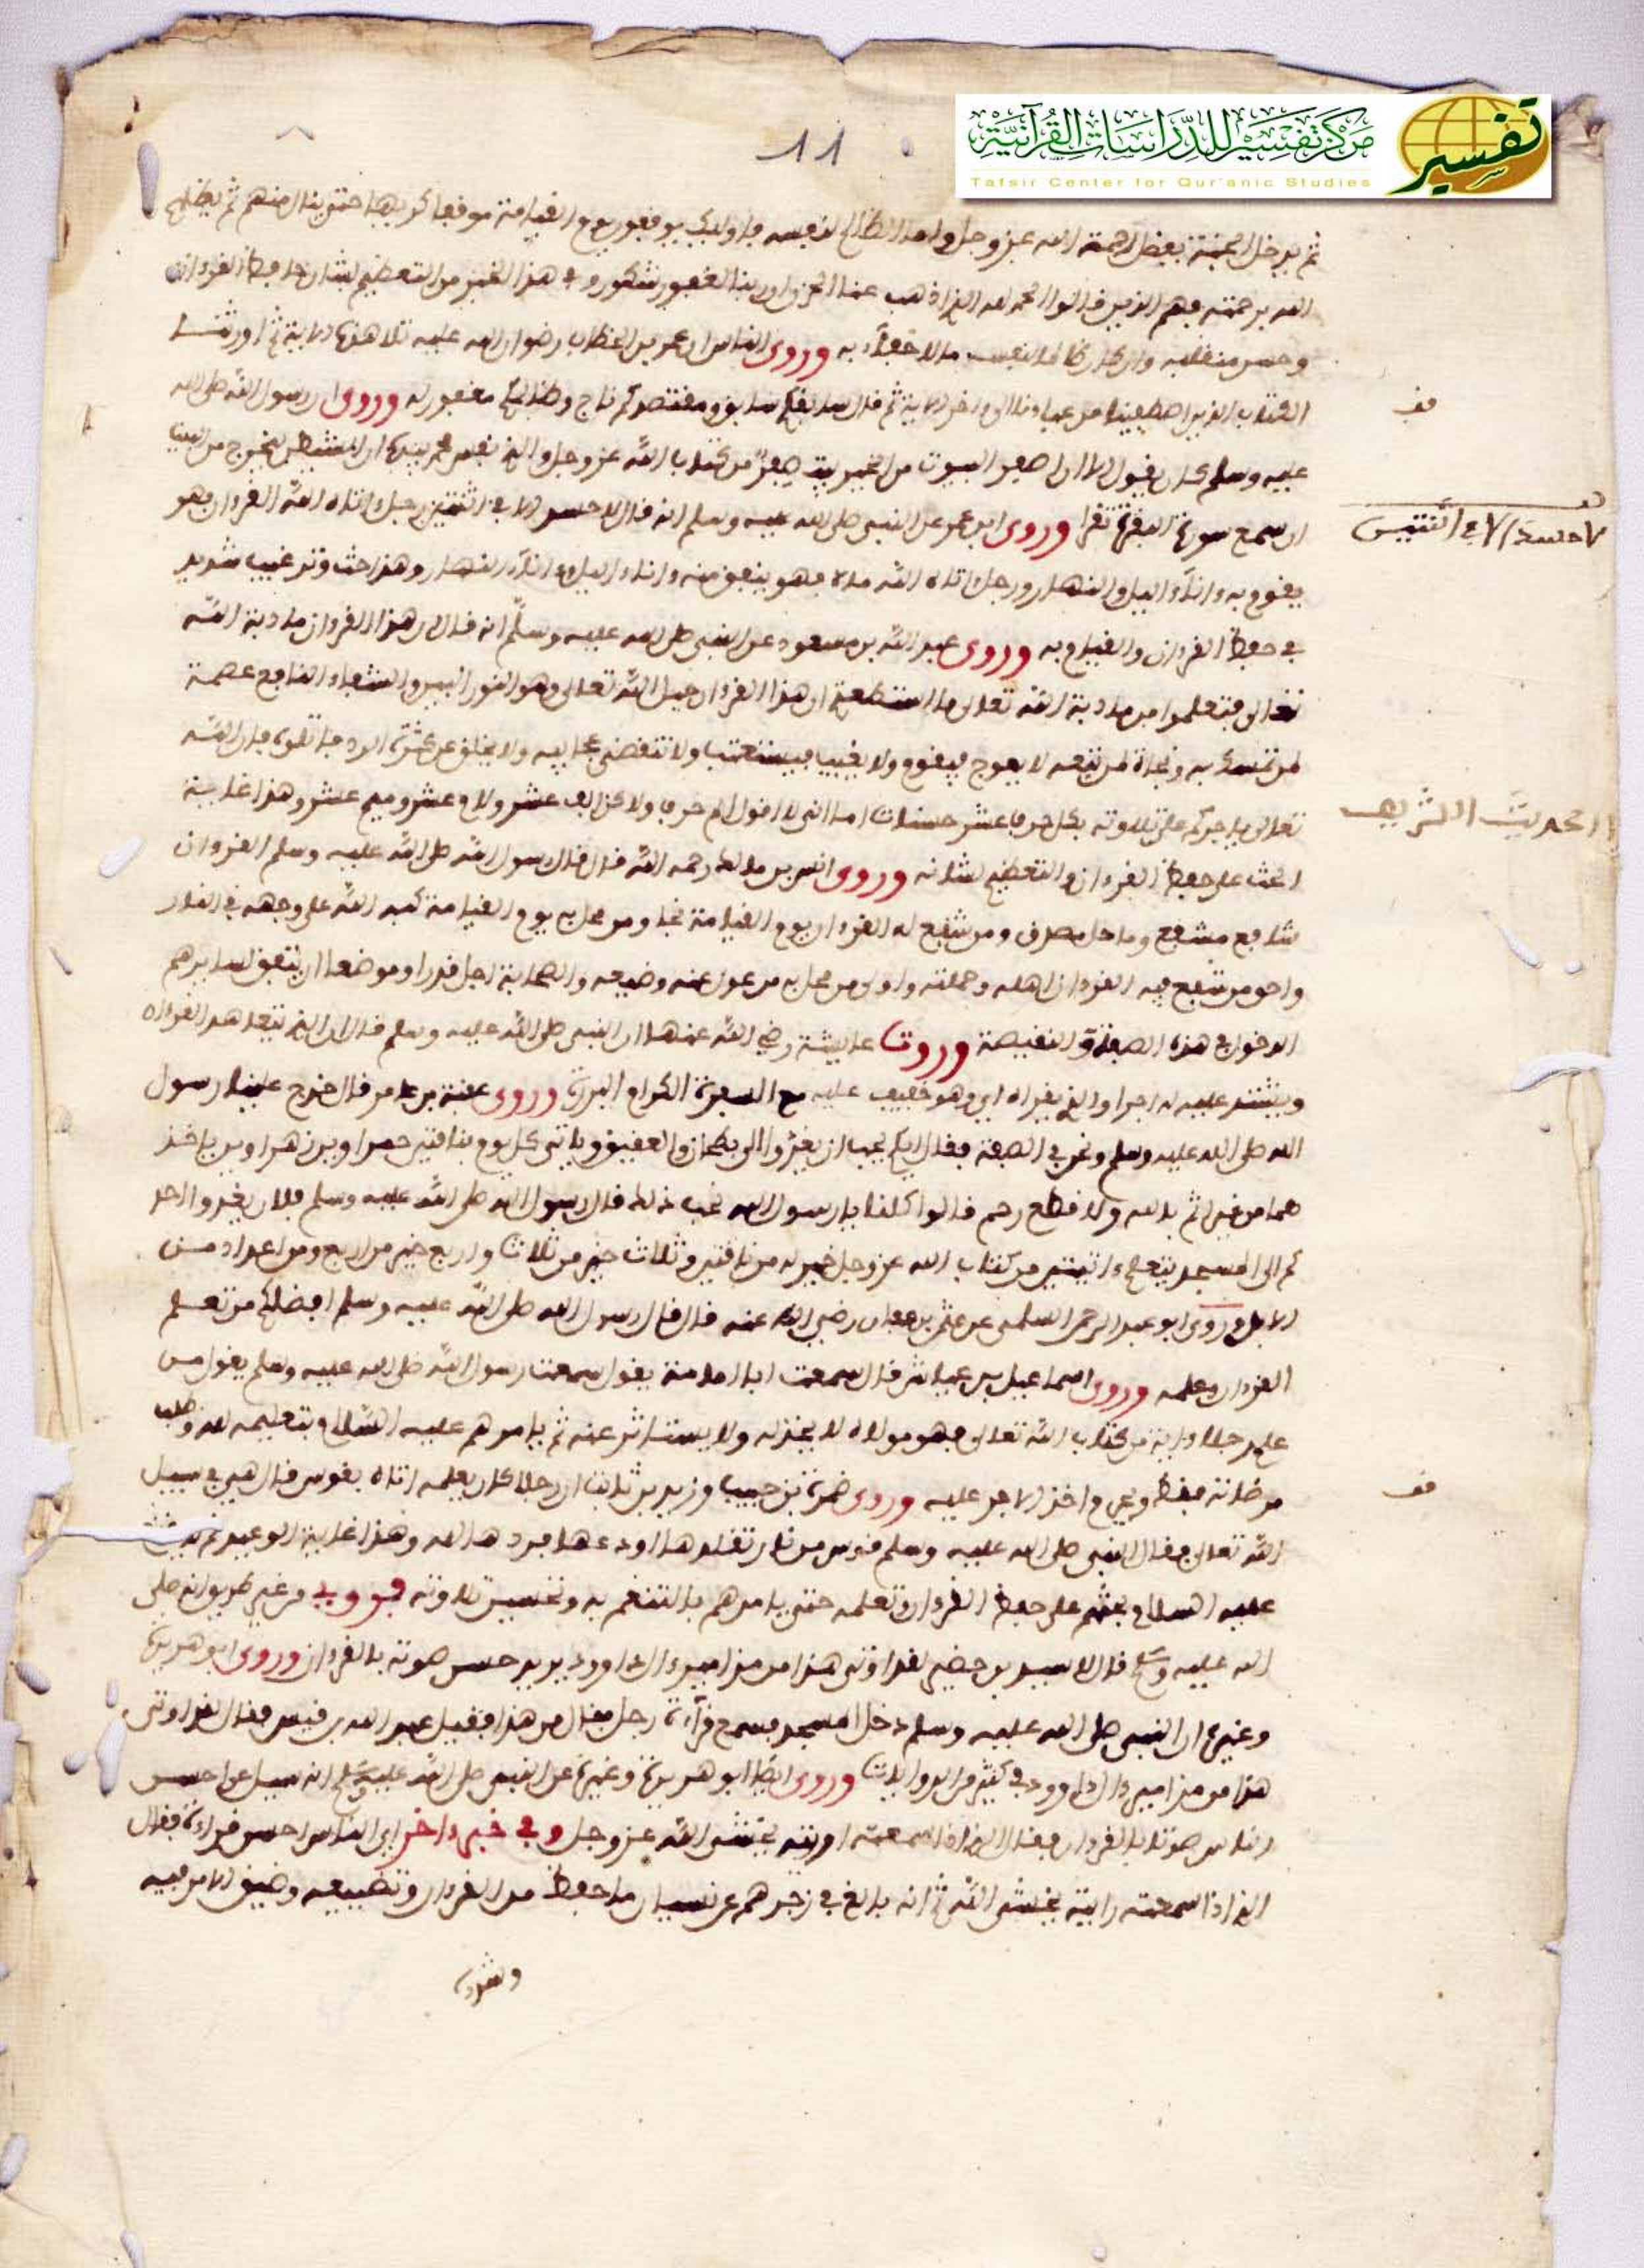 مركز تفسير للدراسات القرآنية
تفسير
Tafsir Center for Qur'anic Studies
11
ثم يدخل الجنة بفضل رحمة الله عز وجل واما الظالم لنفسه فاوليك يوقفون يوم القيامة موقفا كريها حتى ينال منهم ثم يطلع
الله برحمته فهم الذين قالوا الحمد لله الذي اذهب عنا الحزن ان ربنا لغفور شكور وفي هذا الخبر من التعظيم لشان حافظ القرءان
وحسن منقلبه وان كان ظالما لنفسه ما لا خفاء به وروى الناس ان عمر بن الخطاب رضوان الله عليه تلا هذه الاية ثم اورثنا
الكتاب الذين اصطفينا من عبادنا الى ءاخر الاية ثم قال سابقكم سابق ومقتصدكم ناج وظالمكم مغفور له وروى ان رسول الله صلى الله
عليه وسلم كان يقول الا ان اصفر البيوت من الخير بيت صفر من كتاب الله عز وجل والذي نفس محمد بيده ان الشيطن ليخرج من البيت
ان سمع سورة البقرة تقرا وروى ابن عمر عن النبي صلى الله عليه وسلم انه قال لا حسد الا في اثنتين رجل اتاه الله القرءان فهو
لا حسد الا في اثنتين
يقوم به ءاناء اليل والنهار ورجل اتاه الله مالا فهو ينفق منه ءاناء اليل وءاناء النهار وهذا حث وترغيب شديد
في حفظ القرءان والقيام به وروى عبد الله بن مسعود عن النبي صلى الله عليه وسلم انه قال ان هذا القرءان مادبة الله
تعالى فتعلموا من مادبة الله تعالى ما استطعتم ان هذا القرءان حبل الله تعالى وهو النور المبين والشفاء النافع عصمة
لمن تمسك به ونجاة لمن تبعه لا يعوج فيقوم ولا يزيغ فيستعتب ولا تنقضي عجايبه ولا يخلق عن كثرة الرد فاتلوه فان الله
تعالى ياجركم على تلاوته بكل حرف عشر حسنات اما اني لا اقول الم حرف ولكن الف عشر ولام عشر وميم عشر وهذا غاية
الحديث الشريف
الحث على حفظ القرءان والتعظيم لشانه وروى انس بن مالك رحمه الله قال قال رسول الله صلى الله عليه وسلم القرءان
شافع مشفع وماحل مصدق ومن شفع له القرءان يوم القيامة نجا ومن محل به يوم القيامة كبه الله على وجهه في النار
واحق من شفع فيه القرءان اهله وحملته واولى من محل به من عدل عنه وضيعه والصحابة اجل قدرا وموضعا ان يتفق لسايرهم
الدخول في هذه الصفة والنقيصة وروت عايشة رضي الله عنها ان النبي صلى الله عليه وسلم قال ان الذي يتعاهد القرءان
ويشتد عليه له اجران والذي يقراه اي وهو خفيف عليه مع السفرة الكرام البررة وروى عقبة بن عامر قال خرج علينا رسول
الله صلى الله عليه وسلم ونحن في الصفة فقال ايكم يحب ان يغدوا الى بطحان والعقيق وياتي كل يوم بناقتين حمراوين زهراوين ياخذ
هما من غير اثم بالله ولا قطع رحم قالوا كلنا يا رسول الله نحب ذلك قال رسول الله صلى الله عليه وسلم فلان يغدوا احد
كم الى المسجد يتعلم ءايتين من كتاب الله عز وجل خير له من ناقتين وثلاث خير من ثلاث واربع خير من اربع ومن اعدادهن من
الابل وروى ابو عبد الرحمن السلمي عن عثمن بن عفان رضي الله عنه قال قال رسول الله صلى الله عليه وسلم افضلكم من تعلم
القرءان وعلمه وروى اسماعيل بن عياش قال سمعت ابا امامة يقول سمعت رسول الله صلى الله عليه وسلم يقول من
علم رجلا ءاية من كتاب الله تعالى فهو مولاه لا يخذله ولا يستاثر عنه ثم يامرهم عليه السلام بتعليمه لله
وحرم اخذ الاجر عليه وروى ضمرة بن حبيب وزيد بن ثابت ان رجلا كان يعلمه اتاه بقوس قال هي في سبيل
الله تعالى فقال النبي صلى الله عليه وسلم قوس من نار تقلدها او دعها فردها الله وهذا غاية الوعيد
عليه السلام يحثهم على حفظ القرءان وتعلمه حتى يامرهم بالتنغم به وتحسين تلاوته فروى من غير طريق انه صلى
الله عليه وسلم قال لاسيد بن حضير لقد اوتي هذا من مزامير ءال داوود يريد حسن صوته بالقرءان وروى ابو هريرة
وغيره ان النبي صلى الله عليه وسلم دخل المسجد فسمع قراءة رجل فقال من هذا فقيل عبد الله بن قيس فقال لقد اوتي
هذا من مزامير ءال داوود في كثير من الروايات وروى ايضا ابو هريرة وغيره عن النبي صلى الله عليه وسلم انه سيل عن احسن
الناس صوتا بالقرءان فقال الذي اذا سمعته اريته يخشى الله عز وجل وفي خبر ءاخر اي الناس احسن قراءة فقال
الذي اذا سمعته رايته يخشى الله ثم انه بالغ في زجرهم عن نسيان ما حفظ من القرءان وتضييعه وضيق الامر فيه
وشدد